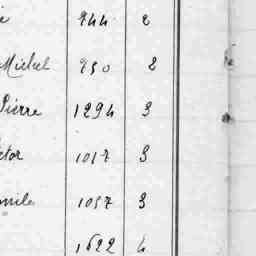 944 2
Michel 950 2
Pierre 1294 3
ctor 1017 3
mile 1057 3
1622 4